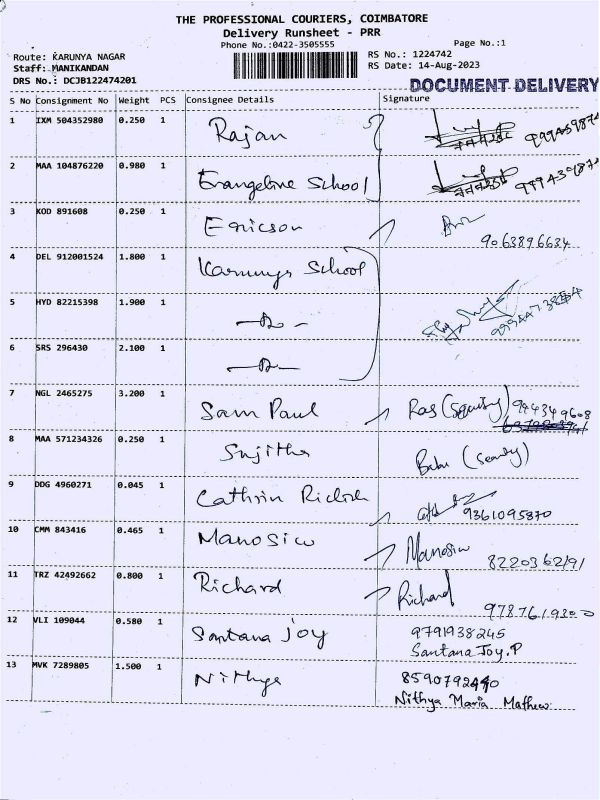 THE PROFESSIONAL COURIERS, COIMBATORE
Delivery Runsheet - PRR
Phone No.:0422-3505555
Page No.:1
Route: KARUNYA NAGAR
RS No.: 1224742
Staff: MANIKANDAN
RS Date: 14-Aug-2023
DRS No.: DCJB122474201
DOCUMENT DELIVERY
S No Consignment No Weight PCS Consignee Details Signature
1 IXM 504352980 0.250 1 Rajan
2 MAA 104876220 0.980 1 Evangeline School
3 KOD 891608 0.250 1 Ericson 9063896634
4 DEL 912001524 1.800 1 Karunya School
5 HYD 82215398 1.900 1
6 SRS 296430 2.100 1
7 NGL 2465275 3.200 1 Sam Paul
8 MAA 571234326 0.250 1 Sujitha Babu
9 DDG 4960271 0.045 1 Cathrin 9361095870
10 CMM 843416 0.465 1 Manosiw Manosiw
8220362191
11 TRZ 42492662 0.800 1 Richard Richard
9787619300
12 VLI 109044 0.580 1 Santana Joy 9791938245
Santana Joy.P
13 MVK 7289805 1.500 1 Nithya
Nithya Maria Mathew